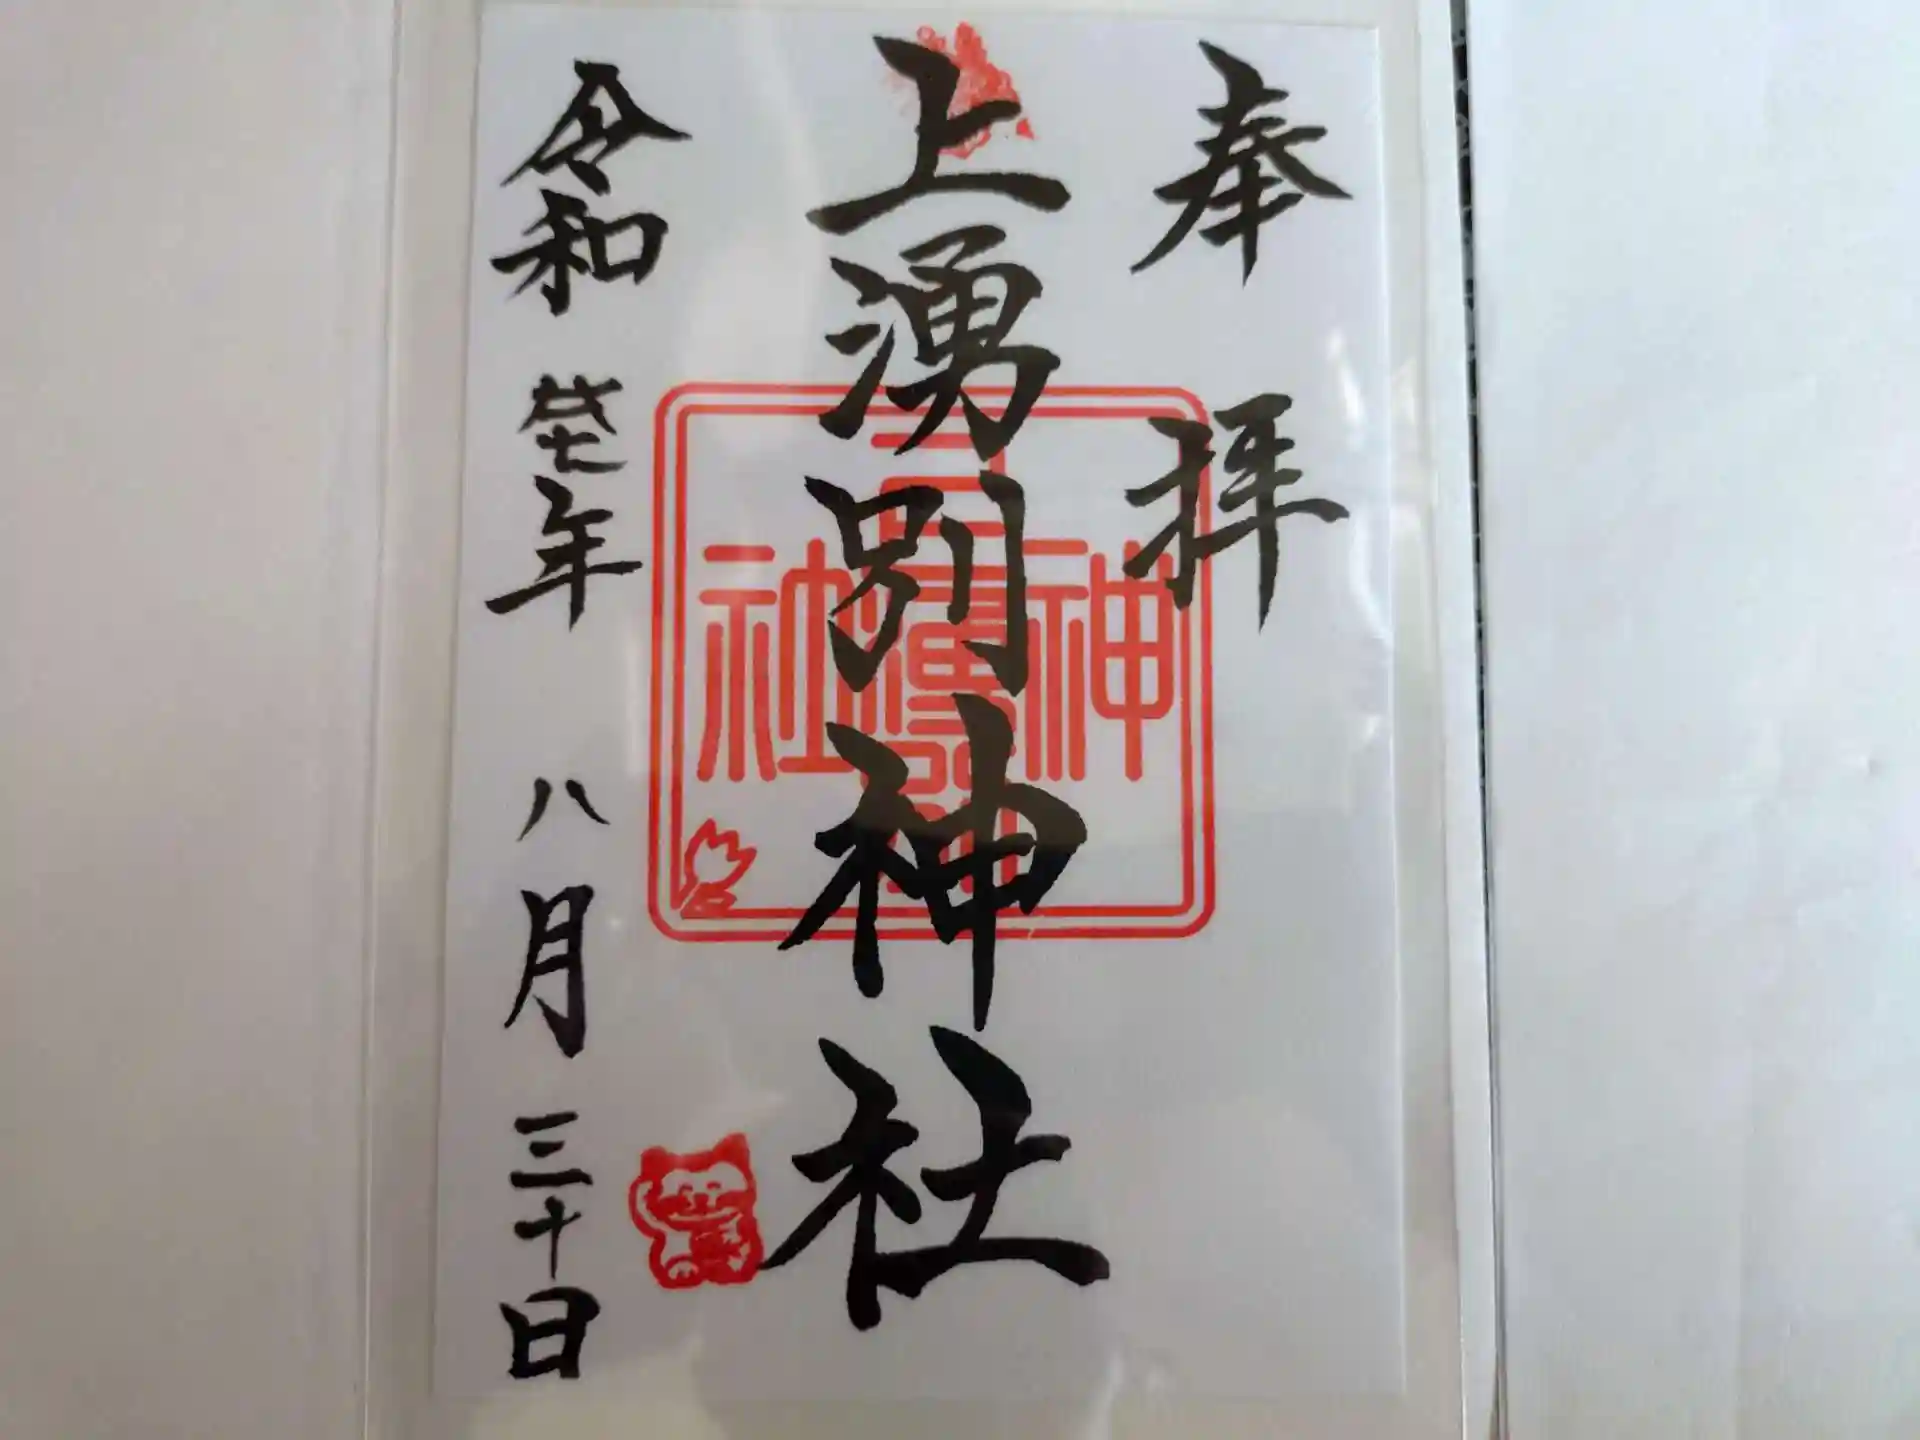 奉拝
上湧別神社
令和 年 八月 三十日
神社